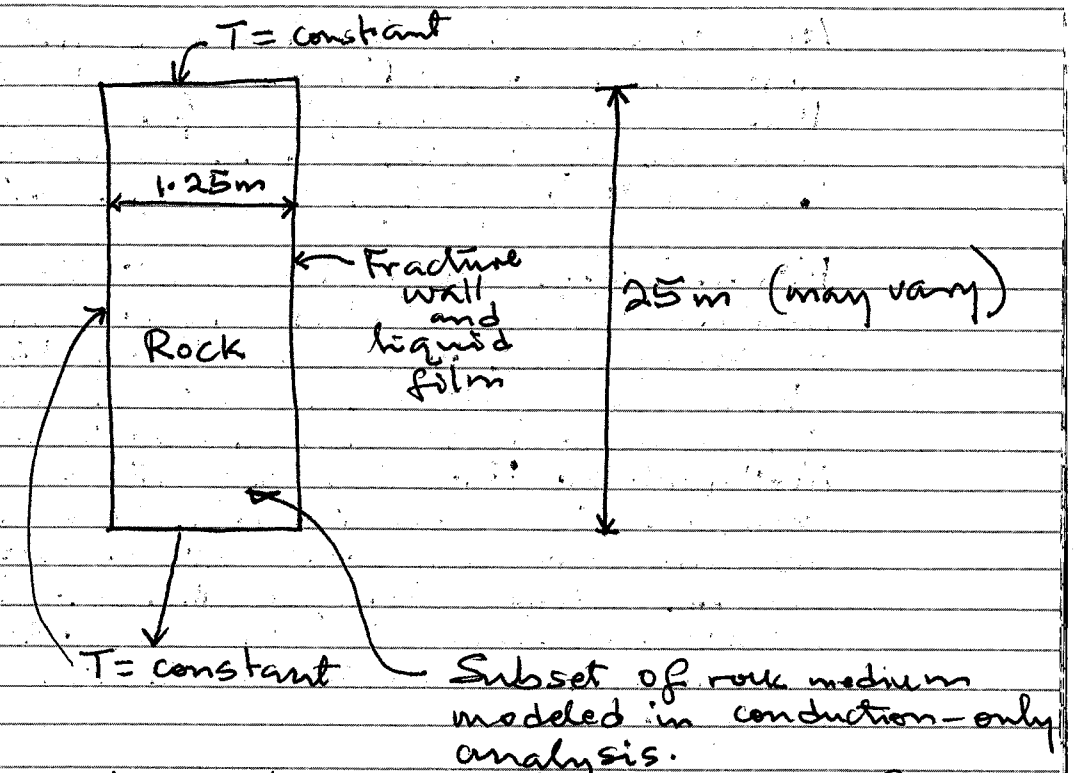 T = constant
1.25m
Fracture
wall
and
liquid
film
25 m (may vary)
Rock
T = constant
Subset of rock medium
modeled in conduction-only
analysis.